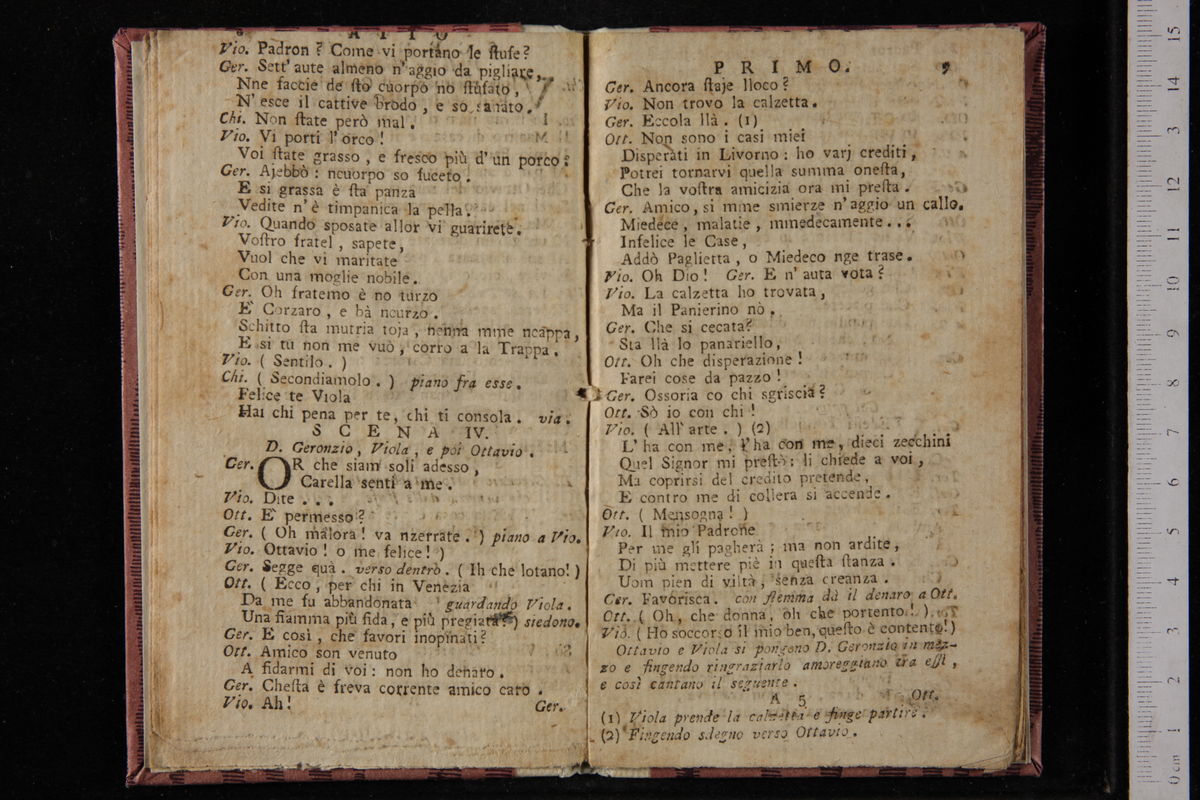 8 ATTO
Vio. Padron? Come vi portano le ſtufe?
Ger. Sett' aute almeno n'aggio da pigliare,
Nne faccie de ſto cuorpo no ſtufato,
N' esce il cattive brodo, e so sanato.
Chi. Non ſtate però mal.
Vio. Vi porti l'orco!
Voi ſtate grasso, e fresco più d'un porco:
Ger. Ajebbò: ncuorpo so ſuceto.
E si grassa è ſta panza
Vedite n'è timpanica la pella.
Vio. Quando sposate allor vi guarirete.
Voſtro fratel, sapete,
Vuol che vi maritate
Con una moglie nobile.
Ger. Oh fratemo è no turzo
E' Corzaro, e bà ncurzo.
Schitto ſta mutria toja, nenna mme ncappa,
E si tu non me vuò, corro a la Trappa.
Vio. (Sentilo.)
Chi. (Secondiamolo.) piano fra esse.
Felice te Viola
Hai chi pena per te, chi ti consola. via.
SCENA IV.
D. Geronzio, Viola, e poi Ottavio.
Ger. OR che siam soli adesso,
Carella senti a me.
Vio. Dite...
Ott. E' permesso?
Ger. (Oh malora! va nzerrate.) piano a Vio.
Vio. Ottavio! o me felice!)
Ger. Segge quà. verso dentro. (Ih che lotano!)
Ott. (Ecco, per chi in Venezia
Da me fu abbandonata guardando Viola.
Una fiamma più fida, e più pregiata?) siedono.
Ger. E così, che favori inopinati?
Ott. Amico son venuto
A fidarmi di voi: non ho denaro.
Ger. Cheſta è freva corrente amico caro.
Vio. Ah!
Ger.
PRIMO. 9
Ger. Ancora ſtaje lloco?
Vio. Non trovo la calzetta.
Ger. Eccola llà. (1)
Ott. Non sono i casi miei
Disperati in Livorno: ho varj crediti,
Potrei tornarvi quella summa oneſta,
Che la voſtra amicizia ora mi preſta.
Ger. Amico, si mme smierze n'aggio un callo.
Miedece, malatie, mmedecamente...
Infelice le Case,
Addò Paglietta, o Miedeco nge trase.
Vio. Oh Dio! Ger. E n'auta vota?
Vio. La calzetta ho trovata,
Ma il Panierino nò.
Ger. Che si cecata?
Sta llà lo panariello,
Ott. Oh che disperazione!
Farei cose da pazzo!
Ger. Ossoria co chi sgriscia?
Ott. Sò io con chi!
Vio. (All' arte.) (2)
L'ha con me, l'ha con me, dieci zecchini
Quel Signor mi preſtò: li chiede a voi,
Ma coprirsi del credito pretende,
E contro me di collera si accende.
Ott. (Mensogna!)
Vio. Il mio Padrone
Per me gli pagherà; ma non ardite,
Di più mettere piè in queſta ſtanza.
Uom pien di viltà, senza creanza.
Ger. Favorisca. con flemma dà il denaro a Ott.
Ott. (Oh, che donna, oh che portento!)
Vio. (Ho soccorso il mio ben, queſto è contento!)
Ottavio e Viola si pongono D. Geronzio in mez-
zo e fingendo ringraziarlo amoreggiano tra essi,
e così cantano il seguente.
A 5 Ott.
(1) Viola prende la calzetta e finge partire.
(2) Fingendo sdegno verso Ottavio.